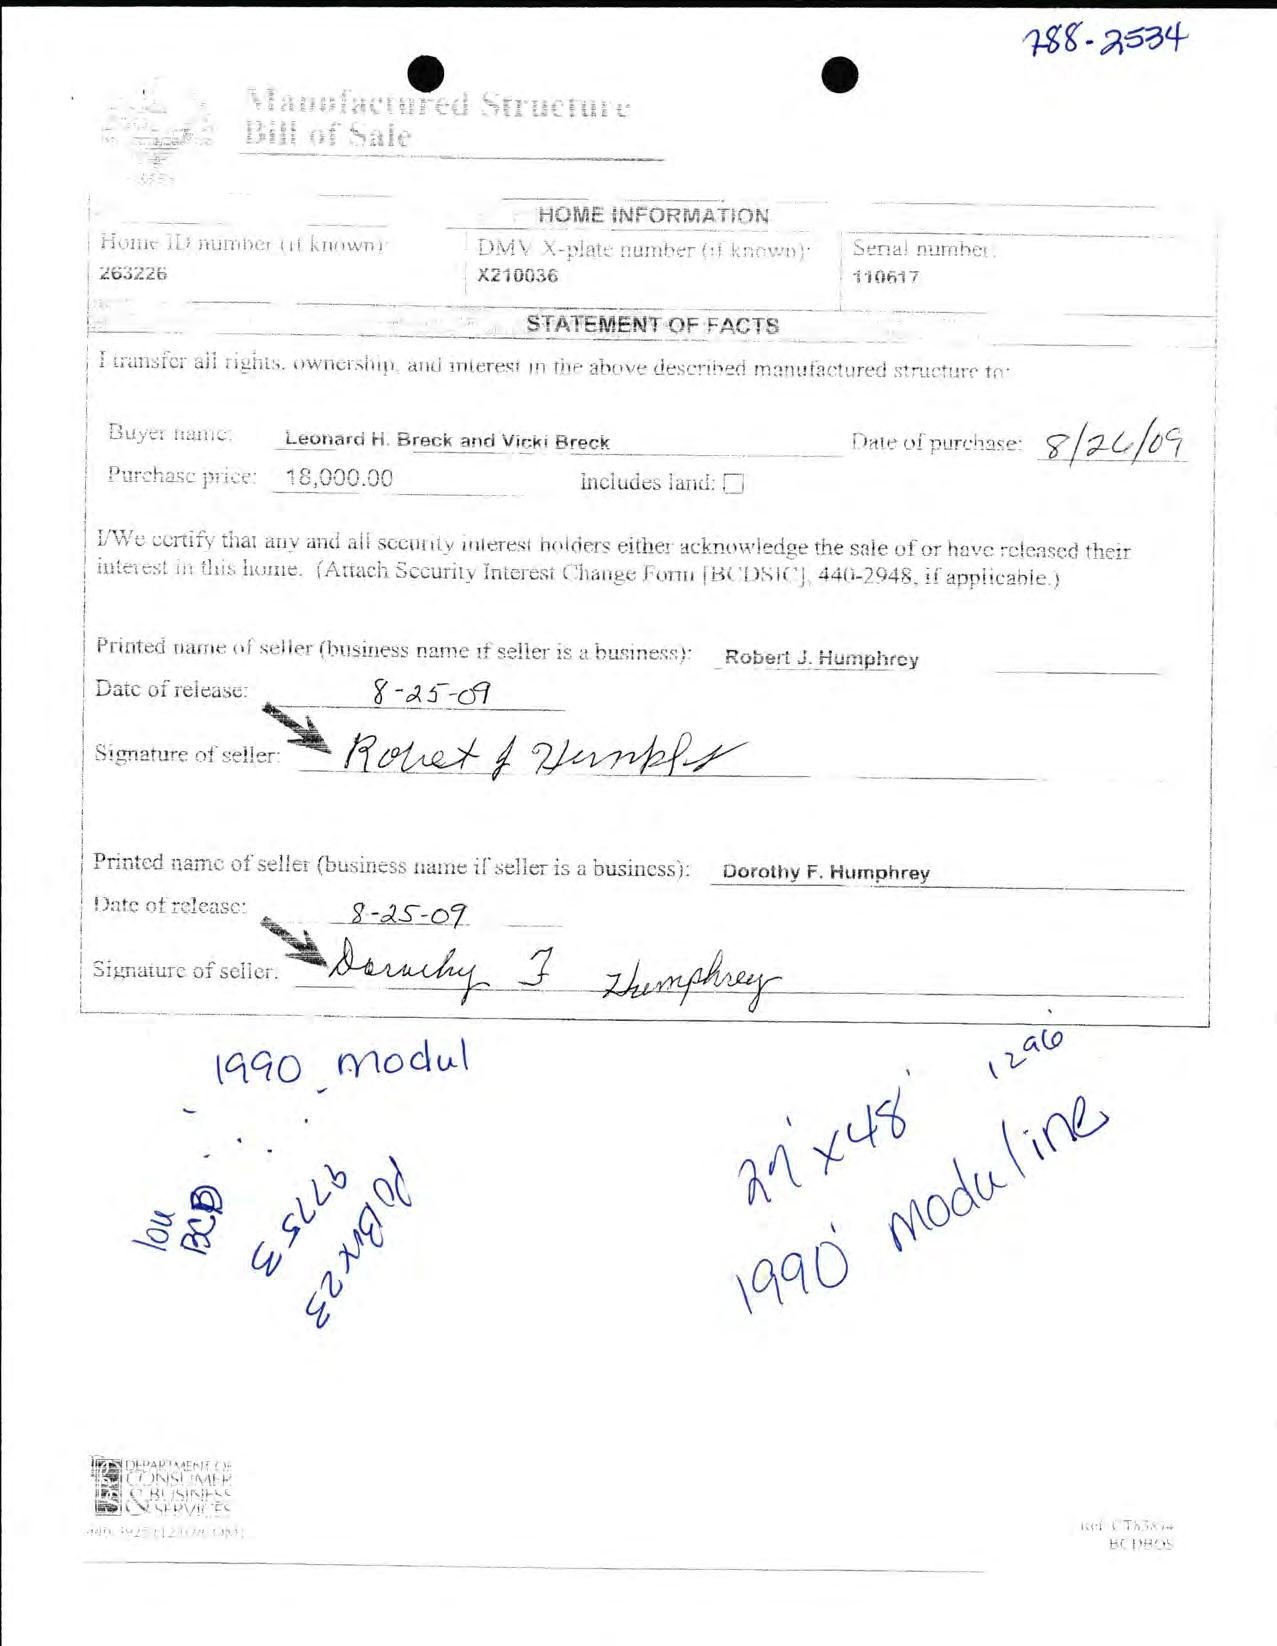 788-2534
Manufactured Structure
Bill of Sale
HOME INFORMATION
Home ID number (if known):
DMV X-plate number (if known):
Serial number:
263226
X210036
110617
STATEMENT OF FACTS
I transfer all rights, ownership, and interest in the above described manufactured structure to:
Buyer name: Leonard H. Breck and Vicki Breck Date of purchase: 8/26/09
Purchase price: 18,000.00 Includes land:
I/We certify that any and all security interest holders either acknowledge the sale of or have released their
interest in this home. (Attach Security Interest Change Form [BCDSIC], 440-2948, if applicable.)
Printed name of seller (business name if seller is a business): Robert J. Humphrey
Date of release: 8-25-09
Signature of seller: Robert J Humphrey
Printed name of seller (business name if seller is a business): Dorothy F. Humphrey
Date of release: 8-25-09
Signature of seller: Dorothy F Humphrey
1990 modul
1296
27' x 48'
1990 moduline
lou
BCD
97753
PO Box 23
DEPARTMENT OF
CONSUMER
& BUSINESS
SERVICES
BCDBOS